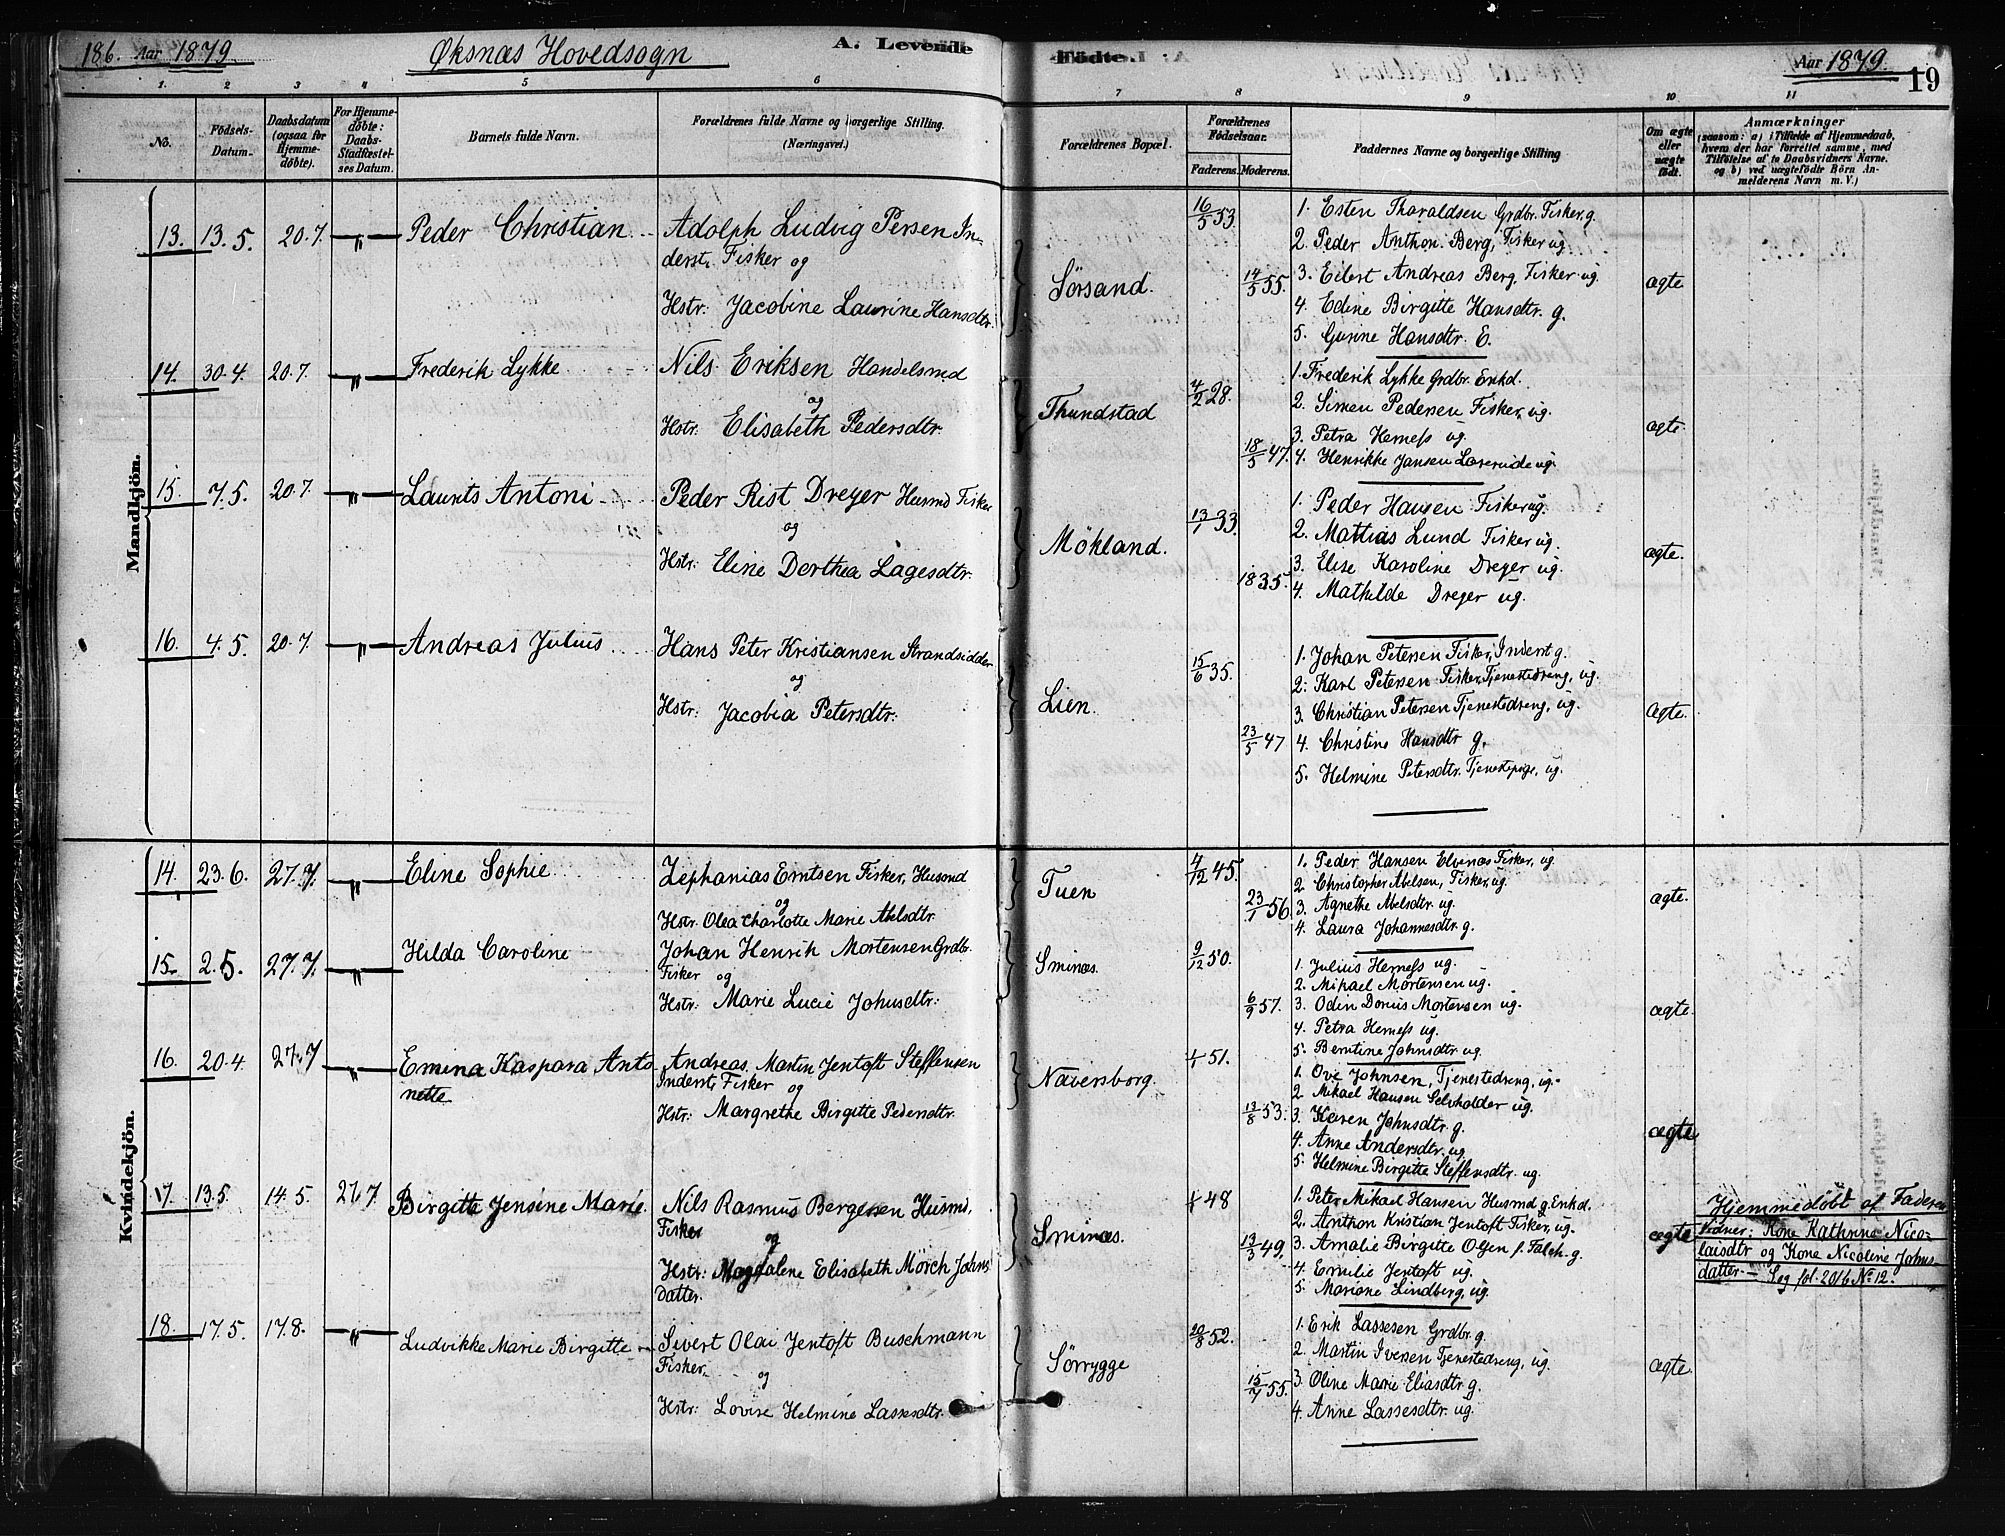 18b. Aar 1879 Øksnæs Hovedsogn A. Levende
Födte. Aar 1879. 19
1. 2 3 4 5 6 7 8 9 10 11
No. Födsels-Datum. Daabsdatum (ogsaa for Hjemmedöbte). For Hjemmedöbte: Daabs-Stadfæstelses Datum. Barnets fulde Navn. Forældrenes fulde Navne og borgerlige Stilling. (Næringsvei.)
Forældrenes Bopæl. Forældrenes Födselsaar. Faderens. Moderens. Faddernes Navne og borgerlige Stilling Om ægte eller uægte födt. Anmærkninger
(saasom: a) i Tilfælde af Hjemmedaab, hvem der har forrettet samme, med Tilföielse af to Daabsvidners Navne. og b) ved uægtefödte Börn Anmelderens Navn m. V.)
Mandkjön.
13. 13.5. 20.7. " Peder Christian Adolph Ludvig Persen In-
derst, Fisker og
Hstr: Jacobine Laurine Hansdtr.
Sörsand. 16/5 53 14/5 55.
1. Esten Tharaldsen Grdbr. Fisker, g.
2. Peder Anthon Berg, Fisker ug
3. Eilert Andreas Berg, Fisker ug.
4. Edine Birgitte Hansdtr. g.
5. Gurine Hansdtr. E.
ægte
14. 30.4. 20.7. " Frederik Lykke Nils Eriksen Handelsmd
og
Hstr: Elisabeth Pedersdtr.
Thundstad 4/2 28. 18/5 47.
1. Frederik Lykke Grdbr. Enkd.
2. Simen Pedersen Fisker, ug.
3. Petra Herness ug.
4. Henrikke Jansen Lærerinde ug.
ægte.
15. 7.5. 20.7. " Laurits Antoni Peder Rist Dreyer Husmd Fisker
og
Hstr: Eline Dorthea Lagesdtr.
Mökland. 13/1 33. 1835.
1. Peder Hansen Fisker ug.
2. Mathias Lund Fisker ug.
3. Elise Karoline Dreyer ug.
4. Mathilde Dreyer ug.
ægte.
16. 4.5. 20.7. " Andreas Julius Hans Peter Kristiansen Strandsidder
og
Hstr: Jacobia Petersdtr.
Lien. 15/6 35. 23/5 47
1. Johan Petersen Fisker, Inderst g.
2. Karl Petersen Fisker, Tjenestedreng, ug.
3. Christian Petersen Tjenestedreng, ug.
4. Christine Hansdtr g.
5. Helmine Petersdtr. Tjenestepige, ug.
ægte.
Kvindekjön.
14. 23.6. 27.7. " Eline Sophie Zephanias Erntsen Fisker, Husmd
og
Hstr. Olea Charlotte Marie Abelsdtr.
Tuen 4/12 45. 23/1 56.
1. Peder Hansen Elvenæs Fisker, ug
2. Christopher Abelsen, Fisker, ug.
3. Agnethe Abelsdtr. ug.
4. Laura Johannesdtr. g.
ægte.
15. 2.5. 27.7. " Hilda Caroline Johan Henrik Mortensen Grdbr.
Fisker og
Hstr: Marie Lucie Johnsdtr:
Sminæs. 9/12 50. 6/9 57.
1. Julius Herness ug.
2. Mikael Mortensen ug.
3. Odin Dorius Mortensen ug.
4. Petra Herness ug.
5. Berntine Johnsdtr ug.
ægte.
16. 20.4 27.7 " Emina Kaspara Anto
nette
Andreas Martin Jentoft Steffensen
Inderst, Fisker og
Hstr: Margrethe Birgitte Pedersdtr.
Naversborg. 1/1 51. 13/8 53.
1. Ove Johnsen, Tjenestedreng, ug.
2. Mikael Hansen Selvholder ug.
3. Karen Johnsdtr. g.
4. Anne Andersdtr. ug
5. Helmine Birgitte Steffensdtr. ug.
ægte
17. 13.5. 14.5. 27.7. Birgitte Jensine Marie. Nils Rasmus Bergersen Husmd,
Fisker
og
Hstr: Magdalene Elisabeth Mörch Johns
datter.
Sminæs. 1/1 48 13/3 49.
1. Peter Mikael Hansen Husmd g Enkd.
2. Anthon Kristian Jentoft Fisker, ug.
3. Amalie Birgitte Olsen f. Falch. g.
4. Emilie Jentoft ug.
5. Mariane Lindberg, ug.
ægte
Hjemmedöbt af Faderen
Vidner: Kone Kathrine Nico-
laisdtr og Kone Nicoline Johns-
datter - Seg fol. 201b No 12.
18. 17.5. 17.8. " Ludvikke Marie Birgitte Sivert Olai Jentoft Buschmann
Fisker,
og
Hstr: Lovise Helmine Lassesdtr.
Sörrygge 20/8 52. 15/7 55.
1. Erik Lassesen Grdbr. g.
2. Martin Iversen Tjenestedreng, ug.
3. Oline Marie Eliasdtr g.
4. Anne Lassesdtr. ug.
ægte.